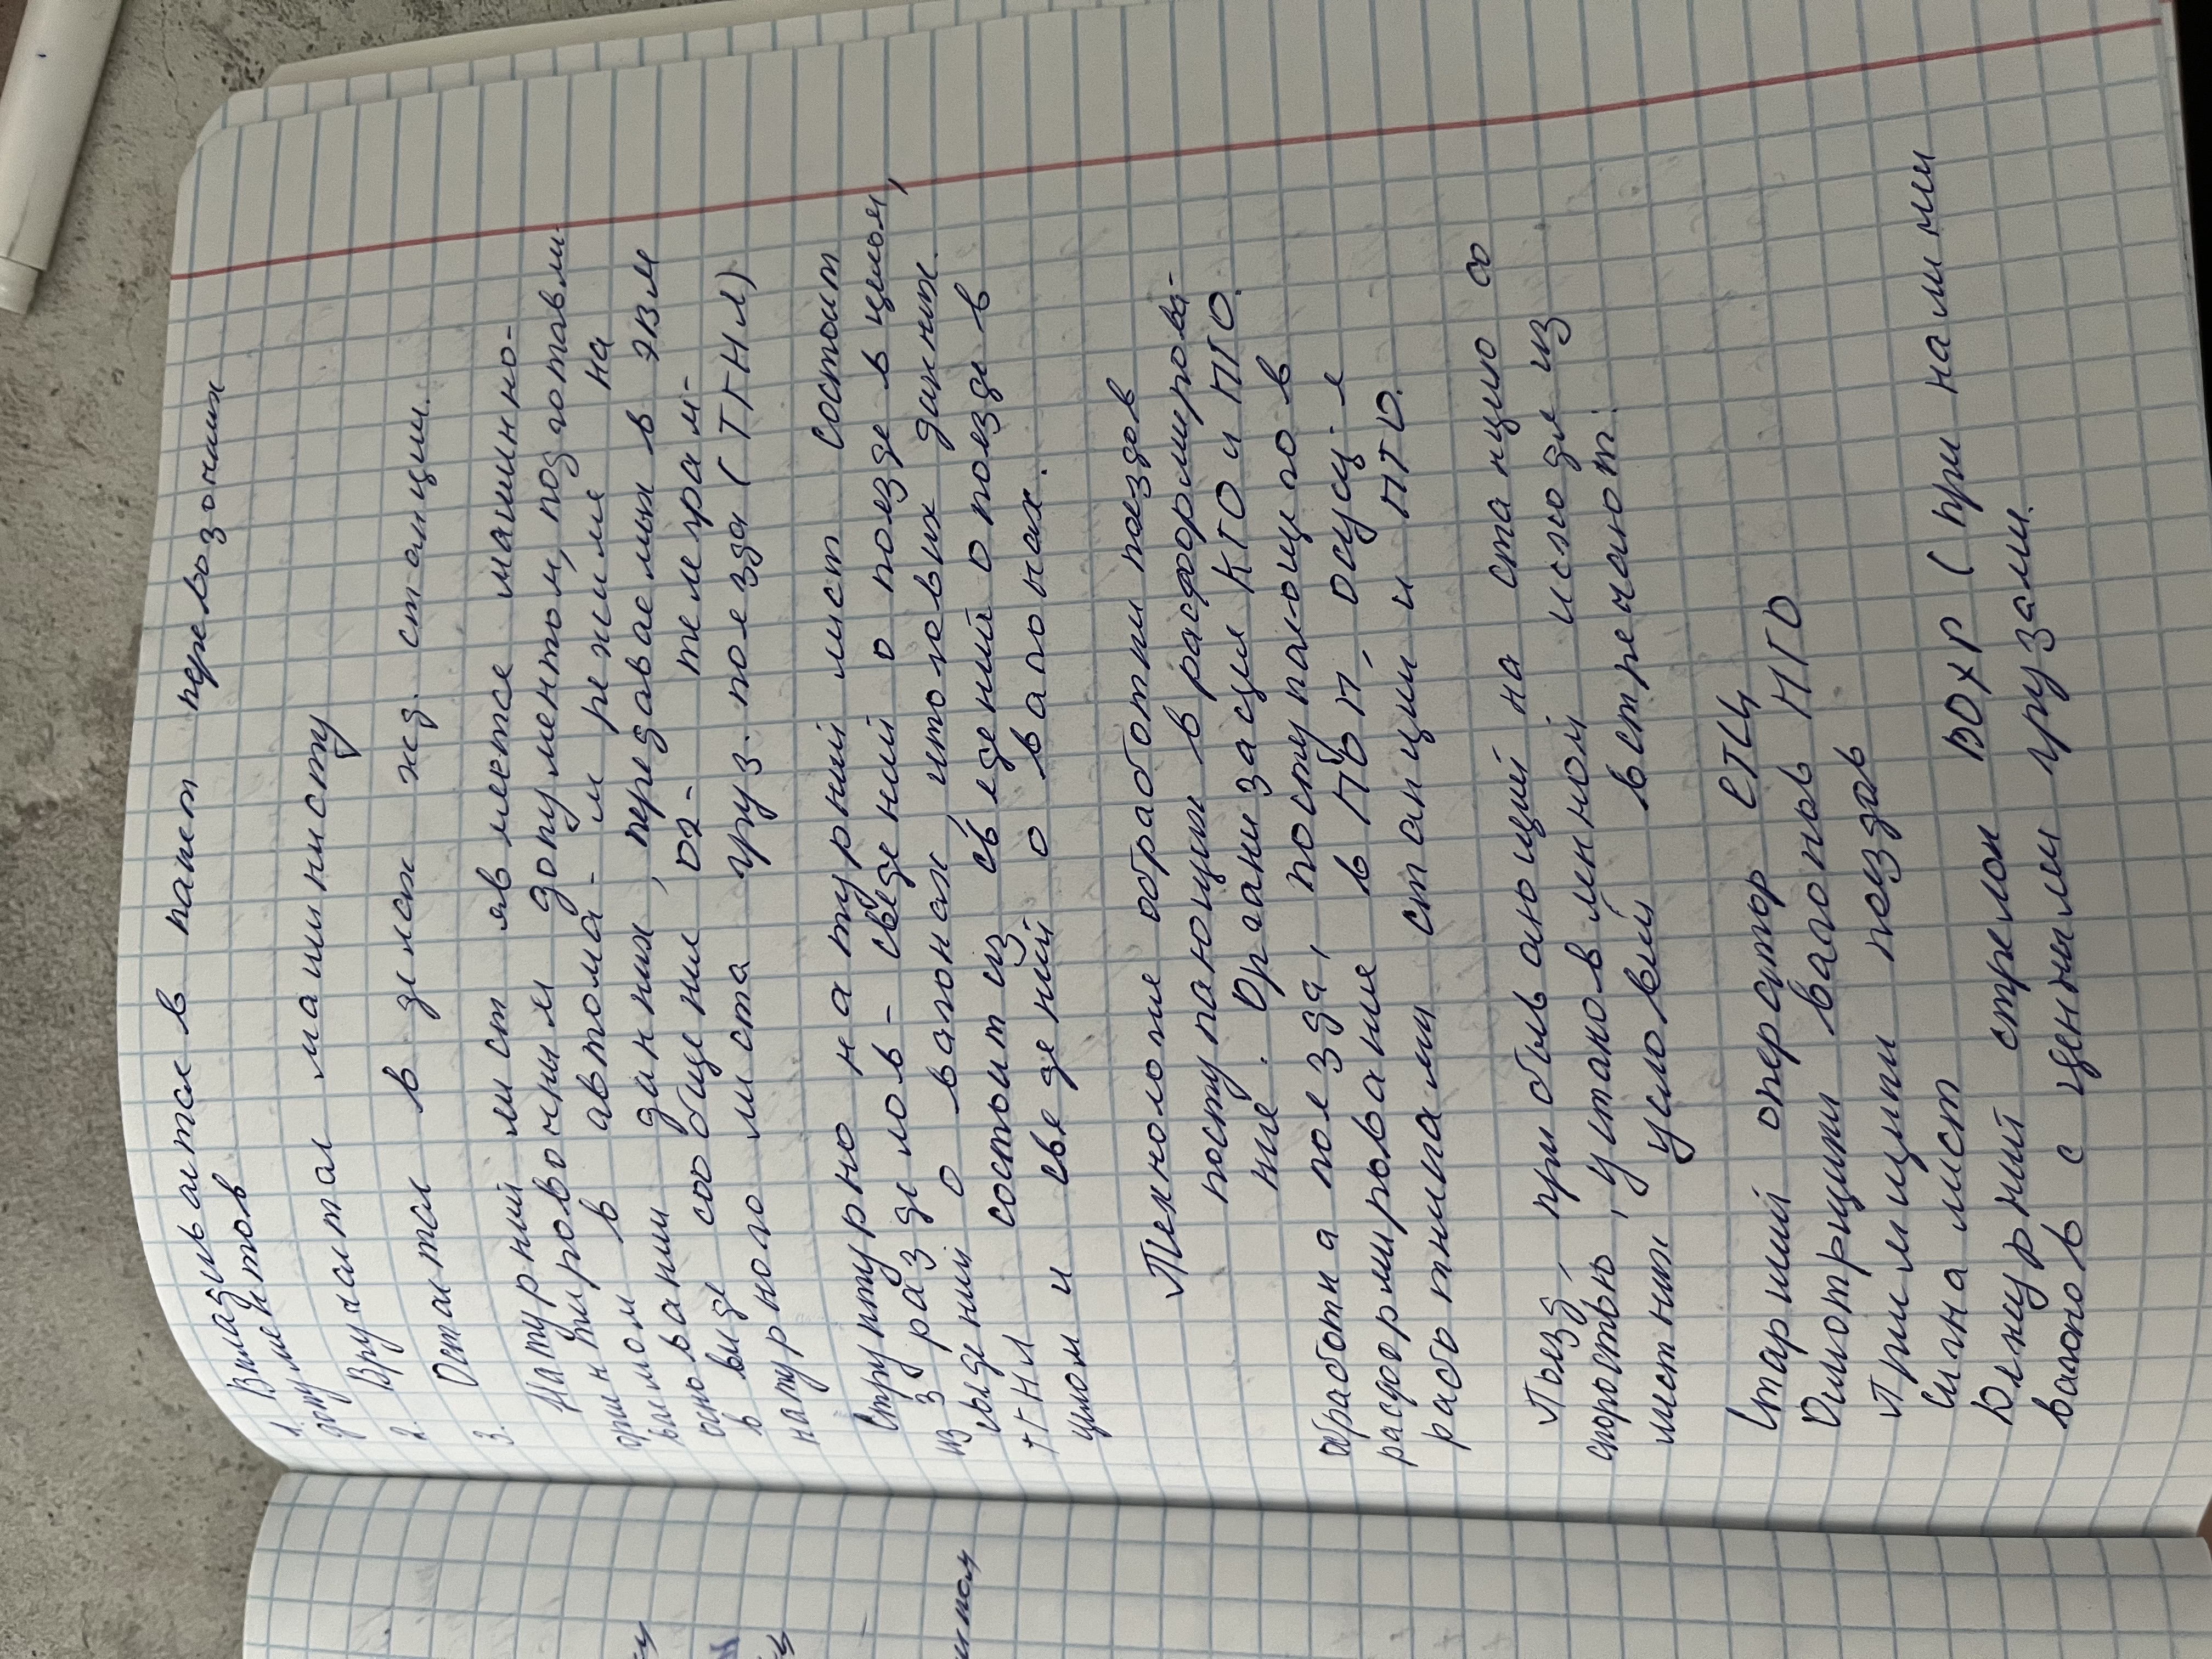 1. Вкладывается в пакет перевозочных
документов
2. Вручается машинисту
3. Остаётся в делах жд. станции.
Натурный лист является машинно-
ориентировочным документом, подготавли-
ваемом в автома- м режиме на
основании данных, передаваемых в ЭВМ
в виде сообщения 02- телеграм-
натурного листа груз. поезда (ТГНЛ)
Структурно натурный лист состоит
из 3 разделов- сведений о поезде в целом,
сведений о вагонах, итоговых данных.
ТГНЛ состоит из сведений о поезде в
целом и сведений о вагонах.
Технология обработки поездов
поступающих в расформирова-
ние. Организация КГО и ПТО.
Обработка поезда, поступающего в
расформирование в ПОП, осущ-я
работниками станции и ПТО.
Поезд, прибывающий на станцию со
скоростью, установленной исходя из
местных условий встречают:
Старший оператор СТЦ
Осмотрщики вагонов ПТО
Приёмщики поездов
Сигналист
Дежурный стрелок ВОХР (при наличии
вагонов с ценными грузами.